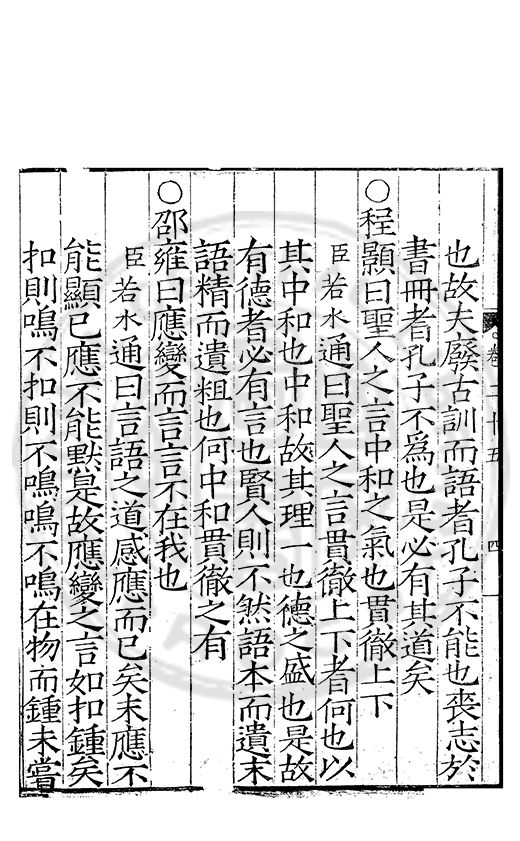 卷二十五 四
也故夫廢古訓而語者孔子不能也喪志於
書冊者孔子不爲也是必有其道矣
○程顥曰聖人之言中和之氣也貫徹上下
臣若水通曰聖人之言貫徹上下者何也以
其中和也中和故其理一也德之盛也是故
有德者必有言也賢人則不然語本而遺末
語精而遺粗也何中和貫徹之有
○邵雍曰應變而言言不在我也
臣若水通曰言語之道感應而已矣未應不
能顯已應不能默是故應變之言如扣鍾矣
扣則鳴不扣則不鳴鳴不鳴在物而鍾未嘗